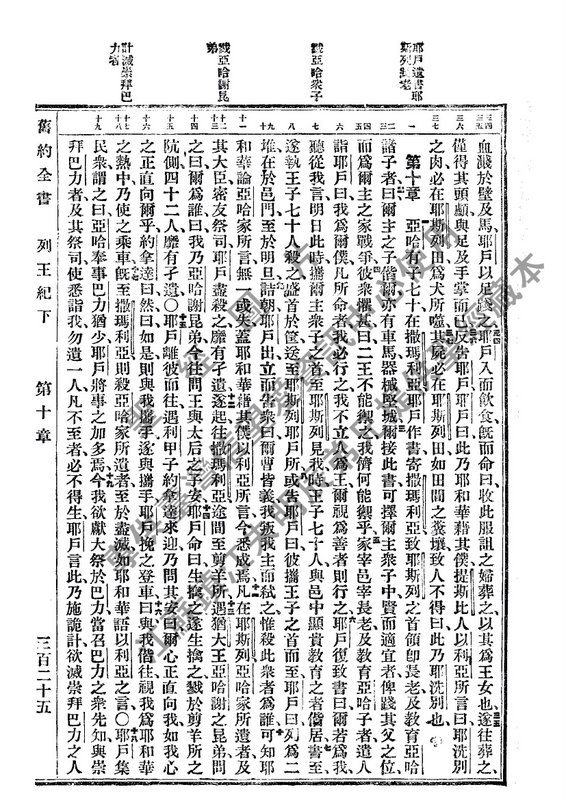 耶戶遺書耶
斯列長老
戮亞哈衆子
戮亞哈謝昆
弟
計滅崇拜巴
力者
血濺於壁及馬耶戶以足踐之耶戶入而飲食旣而命曰收此服詛之婦葬之以其爲王女也遂往葬之
僅得其頭顱與足及手掌而已反吿耶戶耶戶曰此乃耶和華藉其僕提斯比人以利亞所言曰耶洗別
之肉必在耶斯列田爲犬所噬其屍必在耶斯列田如田間之糞壤致人不得曰此乃耶洗別也
第十章 亞哈有子七十在撒瑪利亞耶戶作書寄撒瑪利亞致耶斯列之首領卽長老及敎育亞哈
諸子者曰爾主之子偕爾亦有車馬器械堅城爾接此書可擇爾主衆子中賢而適宜者俾踐其父之位
而爲爾主之家戰爭彼衆懼甚曰二王不能禦之我儕何能禦乎家宰邑宰長老及敎育亞哈子者遣人
詣耶戶曰我爲爾僕凡所命者我必行之我不立人爲王爾視爲善者則行之耶戶復致書曰爾若爲我
聽從我言明日此時攜爾主衆子之首至耶斯列見我時王子七十人與邑中顯貴敎育之者偕居書至
遂執王子七十人殺之盛首於筐送至耶斯列耶戶所或吿耶戶曰彼攜王子之首而至耶戶曰列爲二
堆在於邑門至於明旦詰朝耶戶出立而吿衆曰爾曹皆義我叛我主而弒之惟殺此衆者爲誰可知耶
和華論亞哈家所言無一或失蓋耶和華藉其僕以利亞所言今悉成焉凡在耶斯列亞哈家所遺者及
其大臣密友祭司耶戶盡殺之靡有孑遺遂起往撒瑪利亞途間至剪羊所遇猶大王亞哈謝昆弟問
之曰爾爲誰曰我乃亞哈謝昆弟今往問王與太后之子安耶戶命曰生擒之遂生擒之戮於剪羊所之
阬側四十二人靡有孑遺○耶戶離彼而往遇利甲子約拿達來迎乃問其安曰爾心正直向我如我心
之正直向爾乎約拿達曰然曰如是則與我攜手遂與攜手耶戶挽之登車曰與我偕往視我爲耶和華
之熱中乃使之乘車旣至撒瑪利亞則殺亞哈家所遺者至於盡滅如耶和華語以利亞之言○耶戶集
民衆謂之曰亞哈奉事巴力猶少耶戶將事之加多焉今我欲獻大祭於巴力當召巴力之衆先知與崇
拜巴力者及其祭司使悉詣我勿遺一人凡不至者必不得生耶戶言此乃施詭計欲滅崇拜巴力之人
舊約全書 列王紀下 第十章 三百二十五